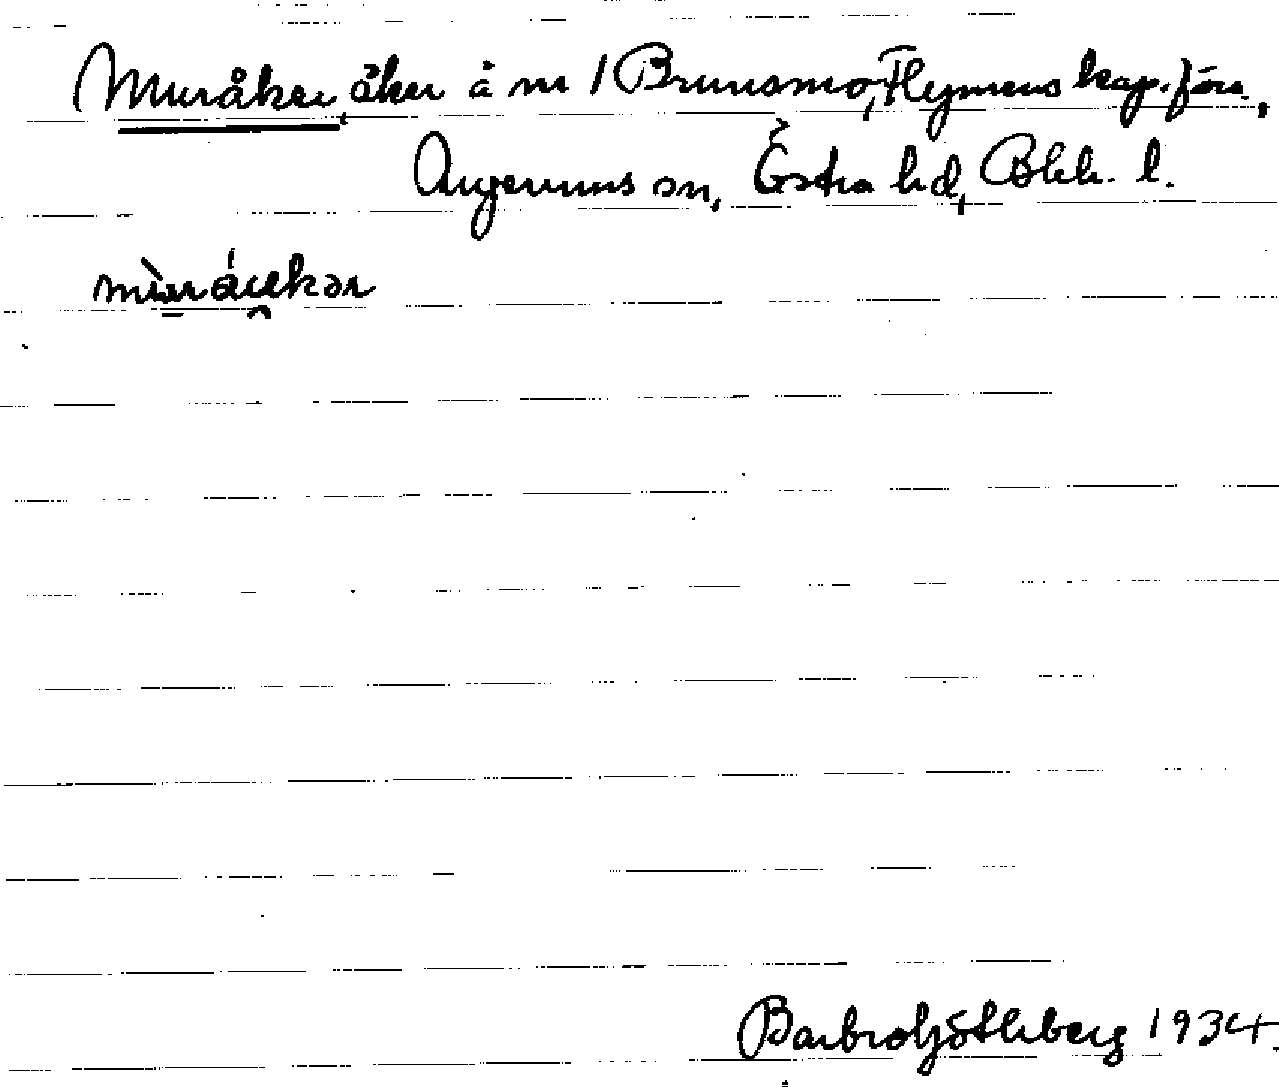 Muråker, åker å nr 1 Brunsmo, Flymens kap. förs.,
Augerums sn, Östra hd, Blek. l.
Barbro Götheberg 1934.